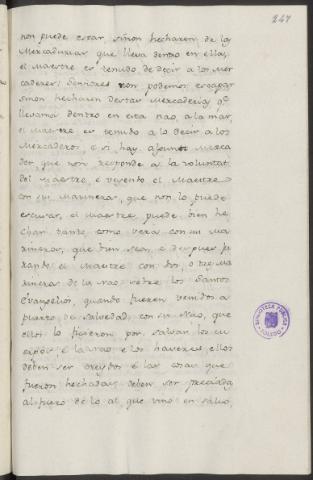 247
non puede estar, sinon hecharen de la
Mercaduriar que lleva dentro en ellas,
el maestre es tenudo de decir a los Mer
caderes: Senhores non podemos escapar
sinon hecharen destas mercaderias qe
llevamos dentro en esta nao, a la mar,
el maestre es tenudo a lo decir a los
Mercaderos, e si hay alguno merca
der que non responde a la voluntat
del maestre, e veyendo el Maestre
con sus marineros, que non lo puede
escusar, el maestre puede bien he
char tanto como vera con sus ma
rineros, que bien sea, e despues ju
rando el Maestre con dos, o tres ma
rineros de la nao sobre los Santos
Evangelios, quando fueren venidos a
puerto de salvedad con su nao, que
ellos lo ficieron por salvar los cu
erpos e la nao e los haveres, ellos
deben ser creydos e las cosas que
fueron hechadas deben ser preciadas
al fuero de lo al que vino en salvo,
BIBLIOTECA PUBLICA
TOLEDO